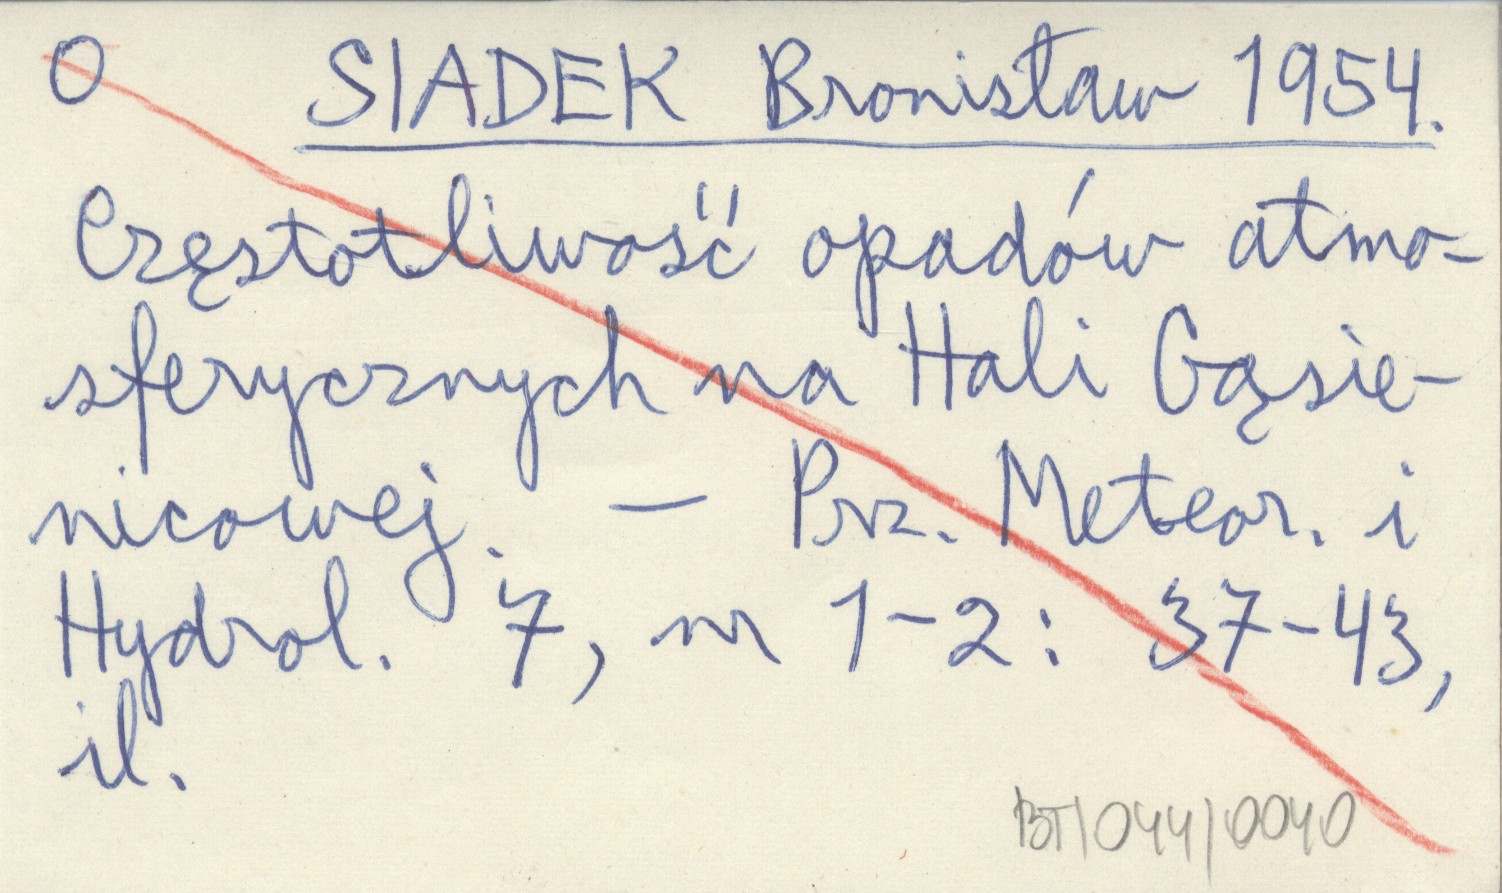 O SIADEK Bronisław 1954.
Częstotliwość opadów atmo-
sferycznych na Hali Gąsie-
nicowej. — Prz. Meteor. i
Hydrol. 7, nr 1-2: 37-43,
il.
BT/044/0040